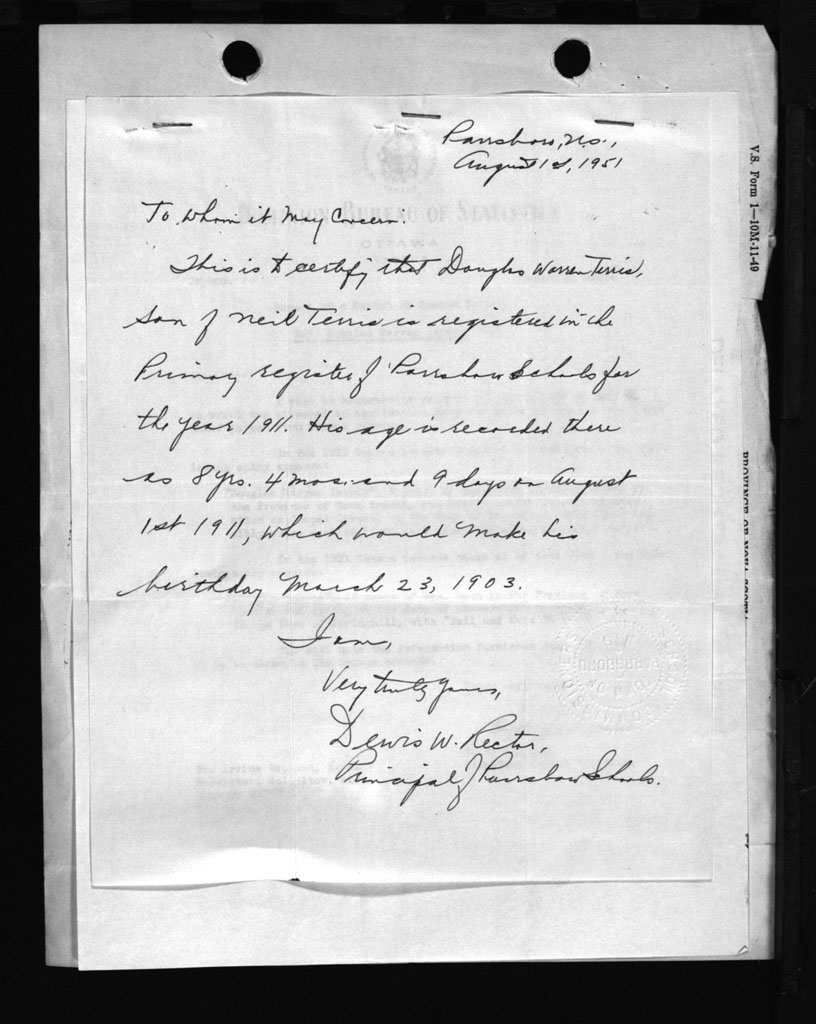 Parrsboro, N.S.,
August 1st, 1951
To Whom it May Concern.
This is to certify that Douglas Warren Terris,
Son of Neil Terris is registered in the
Primary register of Parrsboro Schools for
the year 1911. His age is recorded there
as 8 yrs. 4 mos. and 9 days on August
1st 1911, which would make his
birthday March 23, 1903.
I am,
Very truly yours,
Dewis W. Rector,
Principal of Parrsboro Schools.
BUREAU OF STATISTICS
OTTAWA
V.S. Form 1—10M-11-49